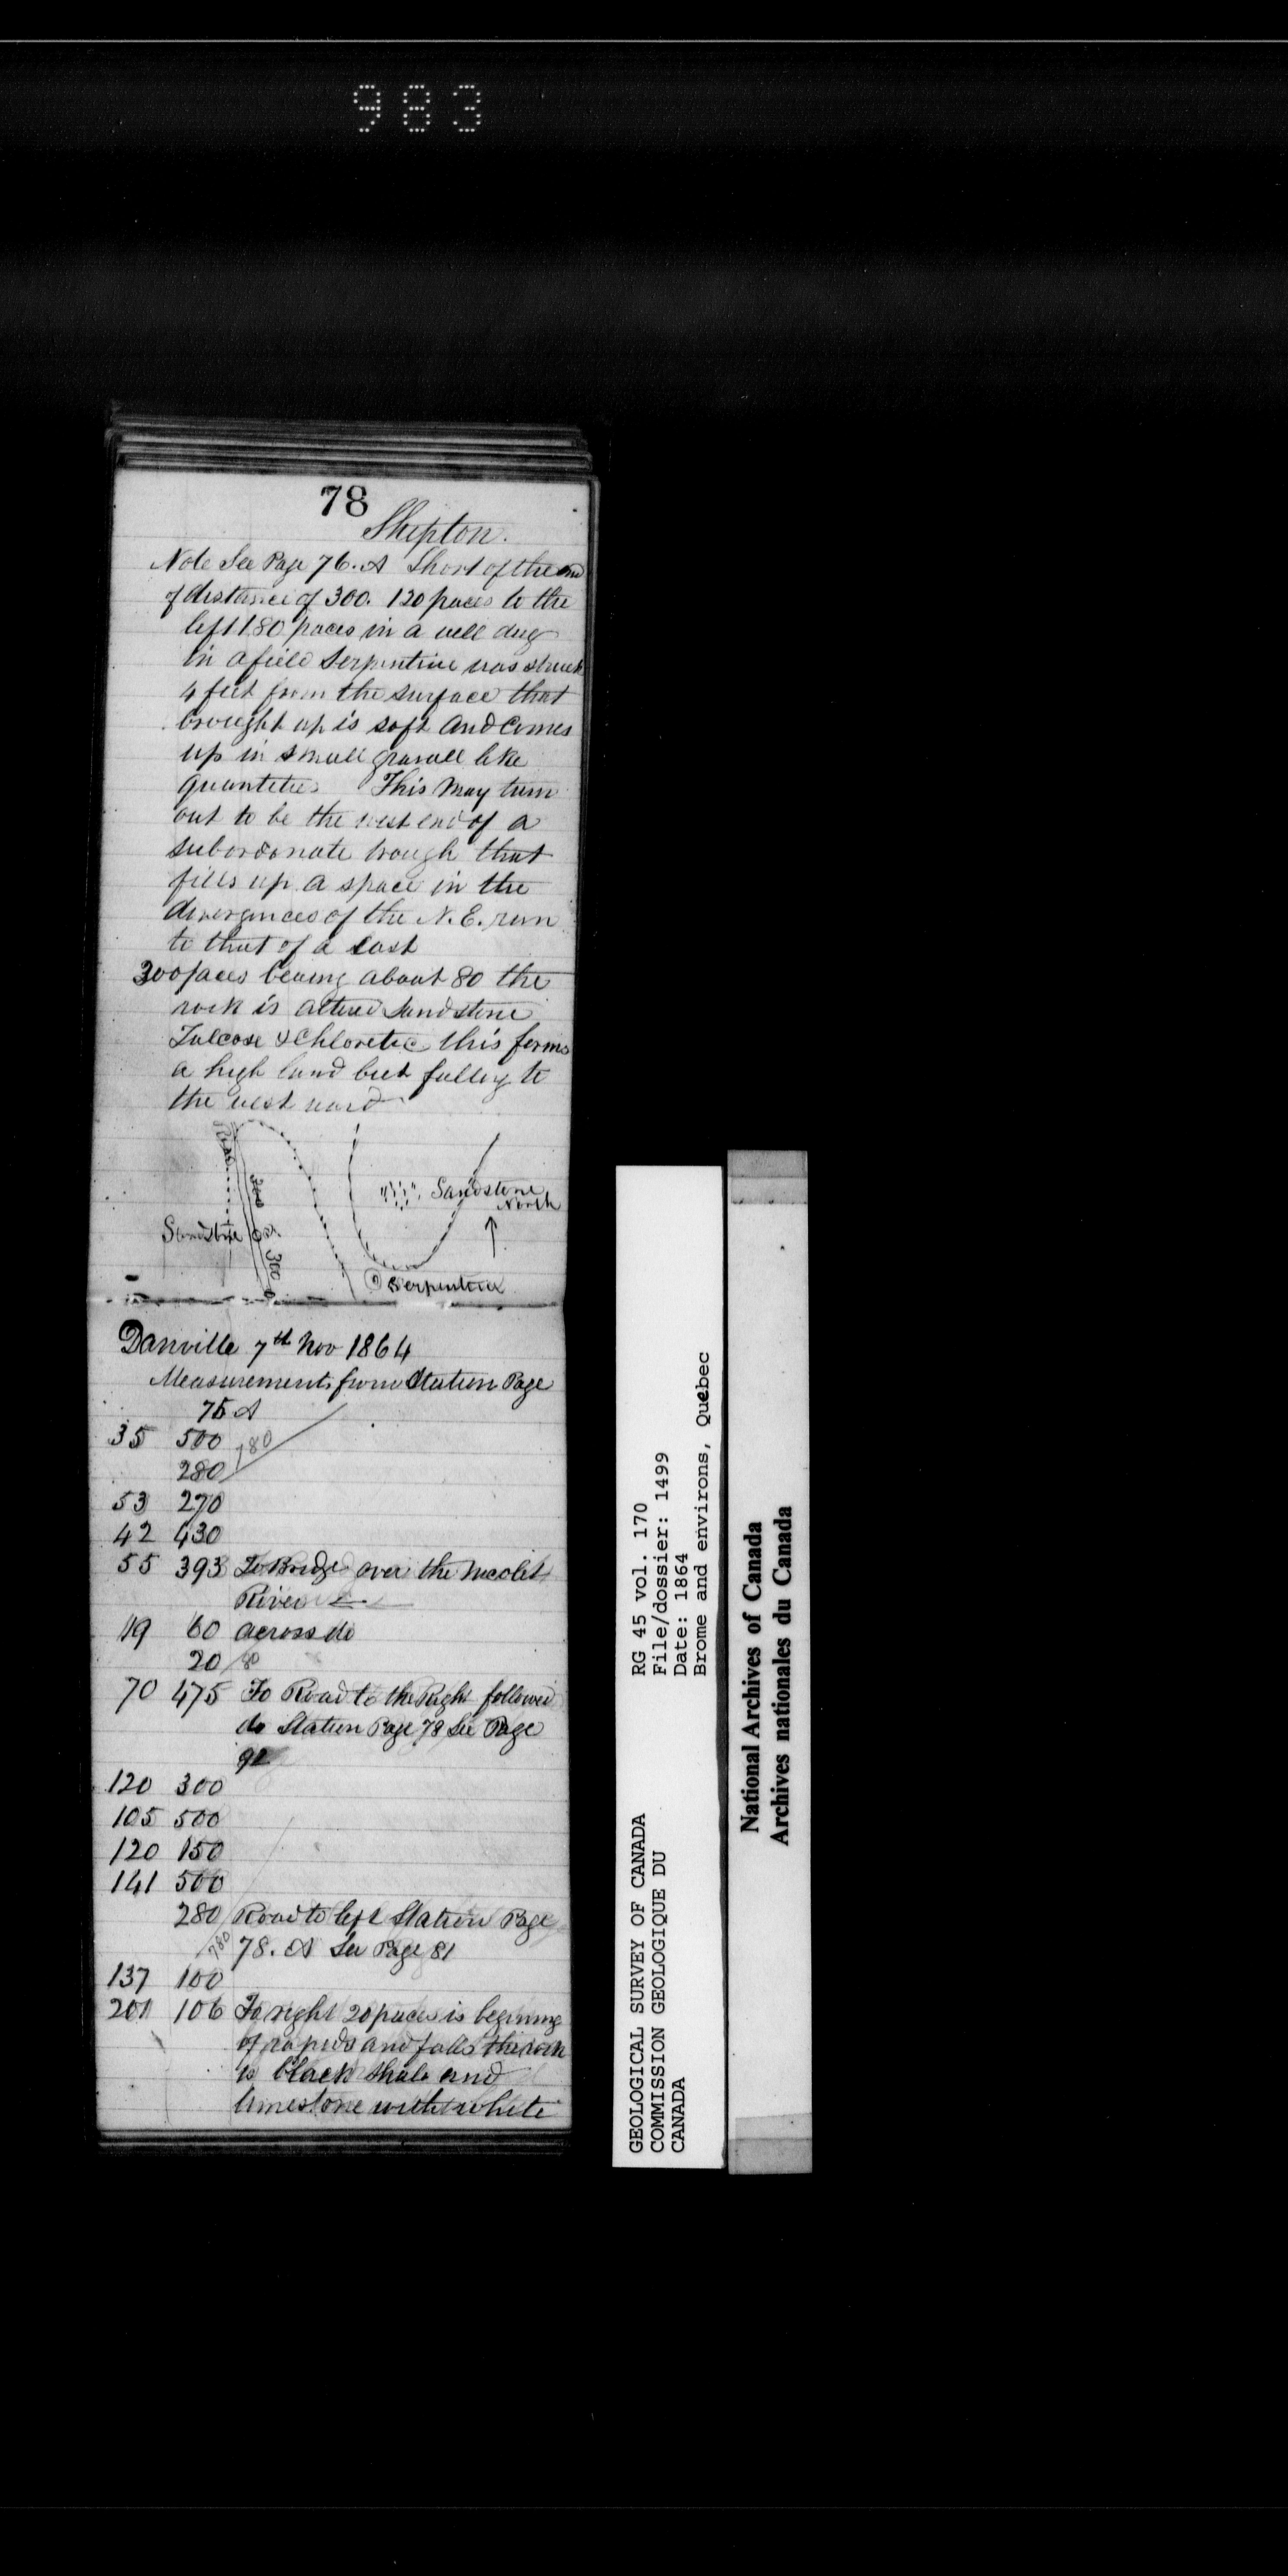 983
78
Shipton.
Note See Page 76. A Short of the end
of distance of 300. 120 paces to the
left 180 paces in a well dug
in a field Serpentine was struck
4 feet from the surface that
brought up is soft and Comes
up in small gravell like
quantities This may turn
out to be the west end of a
subordonate trough that
fills up a space in the
divergences of the N. E. run
to that of a East
300 paces bearing about 80 the
rock is altered Sandstone
Talcose & Chloretic this forms
a high land but falling to
the west ward
Road
300
Sandstone
North
Sandstone
300
Serpentine
Danville 7th Nov 1864
Measurements from Station Page
76 A
35 500
780
280
53 270
42 430
55 393 To Bridge over the Nicolet
River
19 60 across do
20 80
70 475 To Road to the Right followed
do Station Page 78 See Page
92
120 300
105 500
120 150
141 500
280 Road to left Station Page
780 78. A See Page 81
137 100
201 106 To right 20 paces is begining
of rapids and falls the rock
is black shale and
limestone with white
GEOLOGICAL SURVEY OF CANADA
COMMISSION GEOLOGIQUE DU
CANADA
RG 45 vol. 170
File/dossier: 1499
Date: 1864
Brome and environs, Quebec
National Archives of Canada
Archives nationales du Canada